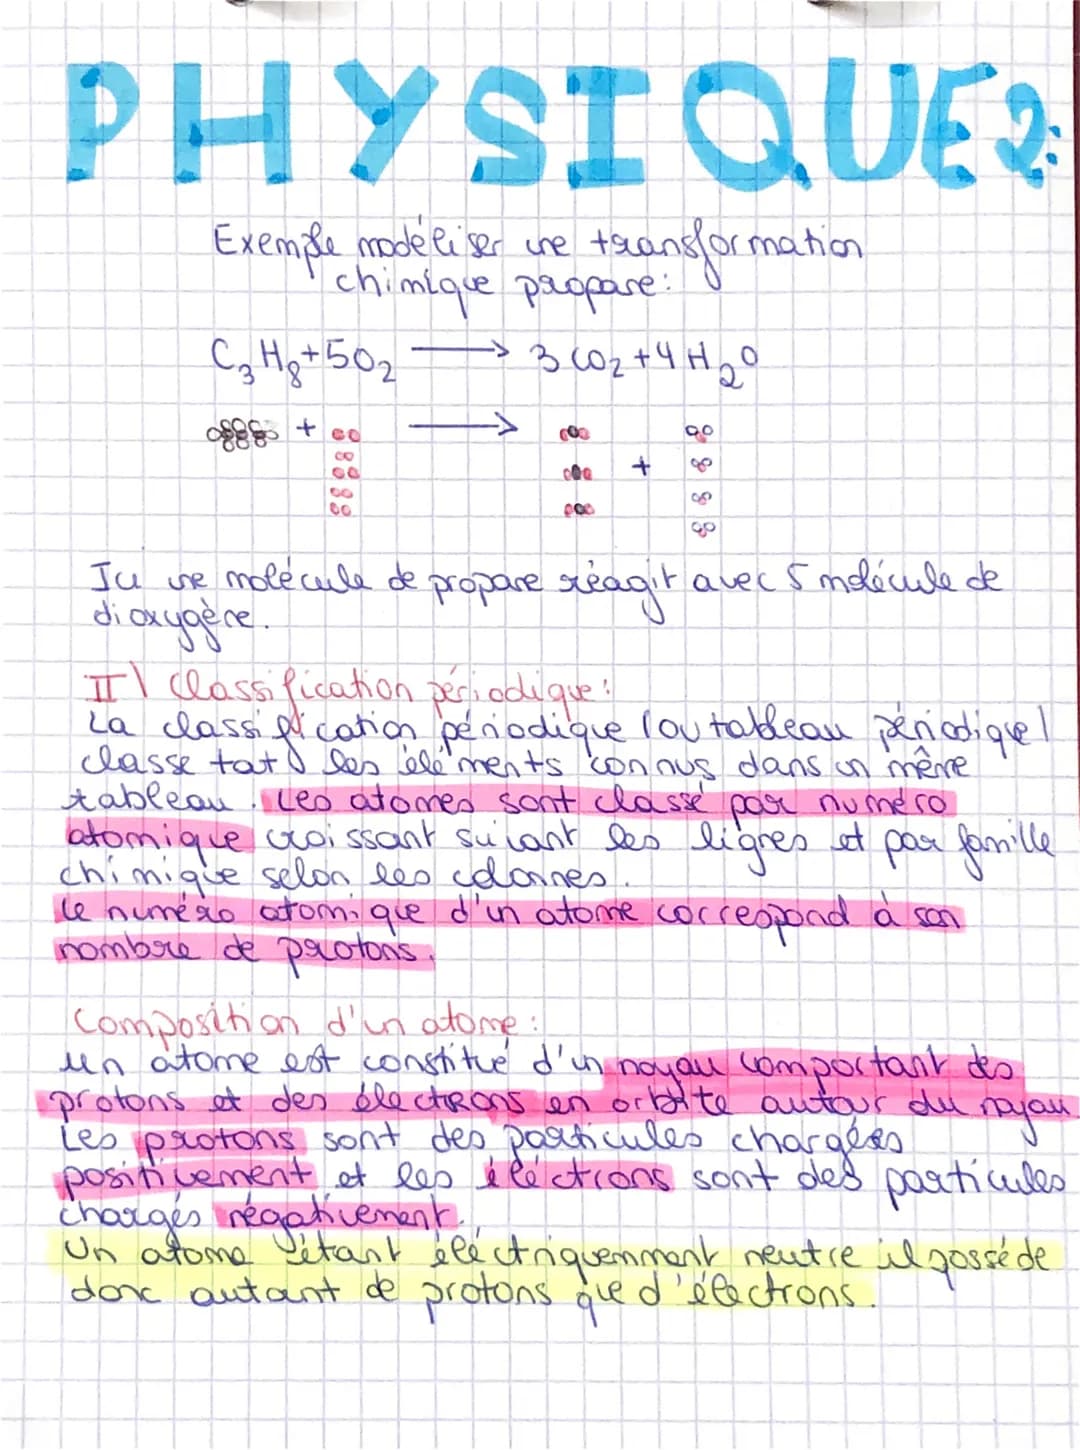 PHYSIQUE 2:
Exemple modéliser une transformation
chimique propane:
C₃H₈+5O₂ ⟶ 3 CO₂+4H₂O
+ ⟶ +
Ici une molécule de propane réagit avec 5 molécule de
dioxygène.
II\ Classification périodique:
La classification périodique (ou tableau périodique)
classe tout les éléments connus dans un même
tableau. Les atomes sont classé par numéro
atomique croissant suivant les lignes et par famille
chimique selon les colonnes.
Le numéro atomique d'un atome correspond à son
nombre de protons.
Composition d'un atome:
Un atome est constitué d'un noyau comportant des
protons et des électrons en orbite autour du noyau
Les protons sont des particules chargées
positivement et les éléctrons sont des particules
chargés négativement.
Un atome étant éléctriquemment neutre il possède
donc autant de protons que d'électrons.